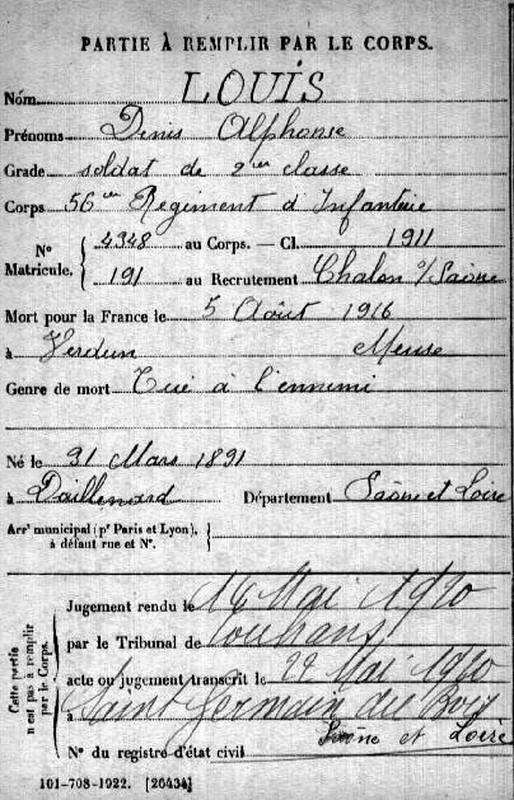 PARTIE À REMPLIR PAR LE CORPS.
Nom LOUIS
Prénoms Denis Alphonse
Grade soldat de 2me classe
Corps 56me Régiment d'Infanterie
N° Matricule. { 4348 au Corps. — Cl. 1911
191 au Recrutement Chalon s/Saône
Mort pour la France le 5 Août 1916
à Verdun Meuse
Genre de mort Tué à l'ennemi
Né le 31 Mars 1891
à Département Saône et Loire
Arrt municipal (pr Paris et Lyon), à défaut rue et N°. }
Cette partie n'est pas à remplir par le Corps.
Jugement rendu le 14 Mai 1920
par le Tribunal de Louhans
acte ou jugement transcrit le 22 Mai 1920
à Saint Germain du Bois
Saone et Loire
N° du registre d'état civil
101-708-1922. [26434]